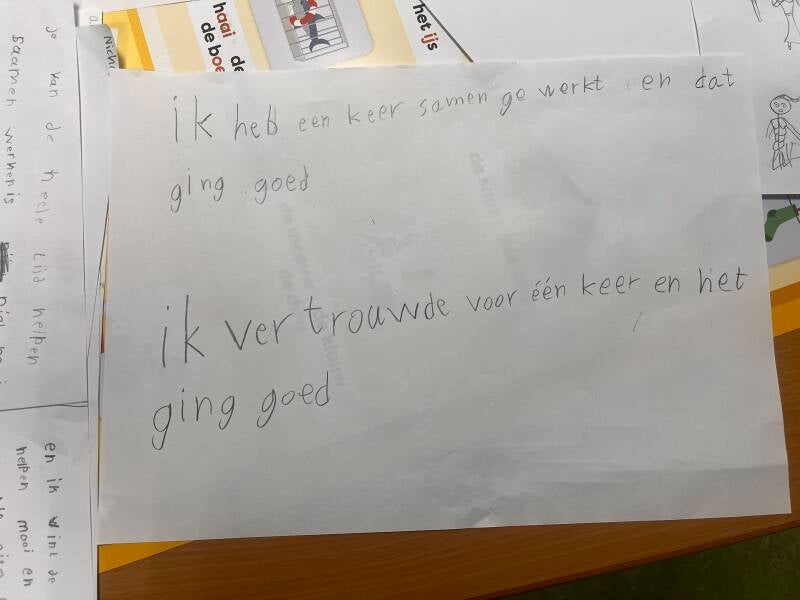 ik heb een keer samen ge werkt en dat
ging goed
ik vertrouwde voor één keer en het
ging goed
haai de
de boe
het ijs
Nich
je van de heele tijd helpen
saamen werken is
en ik vint de
helpen mooi en